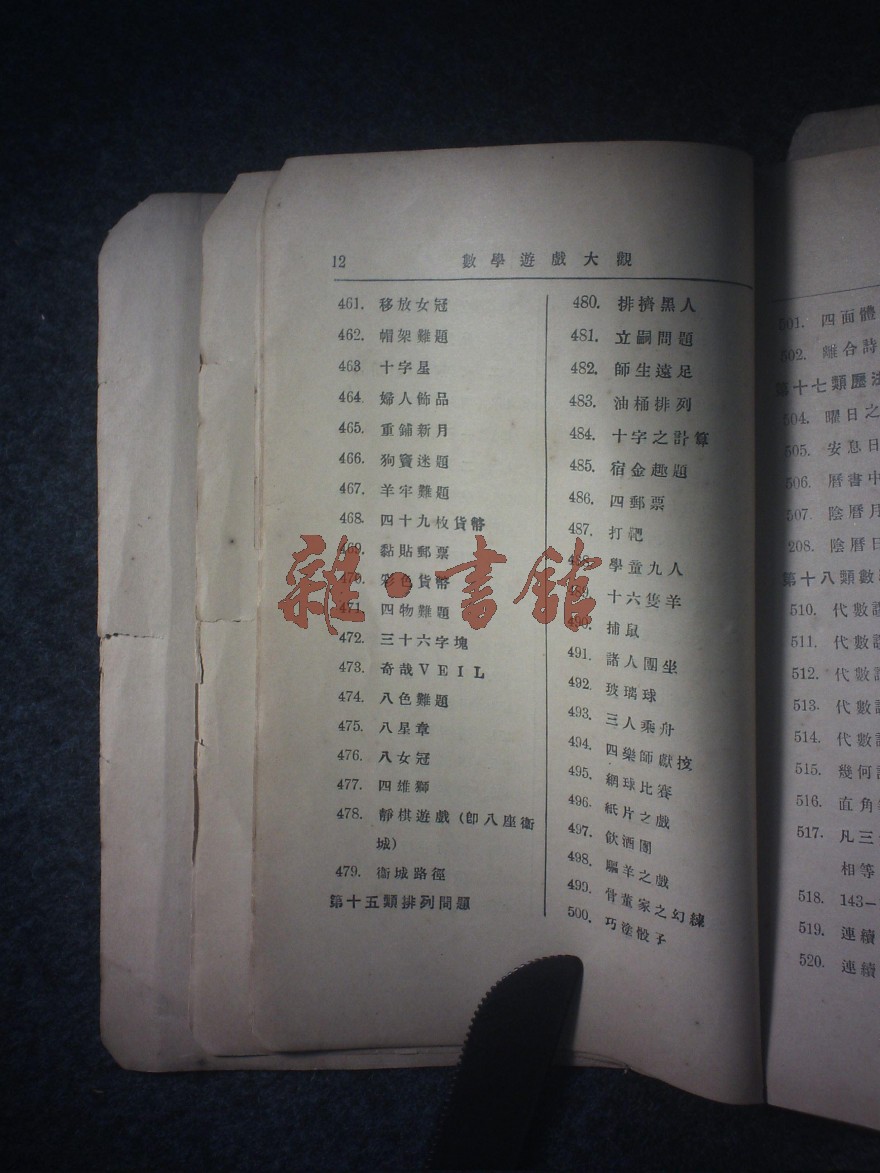 12 數學遊戲大觀
461. 移放女冠
462. 帽架難題
463 十字星
464. 婦人飾品
465. 重鋪新月
466. 狗竇迷題
467. 羊牢難題
468. 四十九枚貨幣
469. 黏貼郵票
470. 彩色貨幣
471. 四物難題
472. 三十六字塊
473. 奇哉VEIL
474. 八色難題
475. 八星章
476. 八女冠
477. 四雄獅
478. 靜棋遊戲(卽八座衞
城)
479. 衞城路徑
第十五類排列問題
480. 排擠黑人
481. 立嗣問題
482. 師生遠足
483. 油桶排列
484. 十字之計算
485. 宿金趣題
486. 四郵票
487. 打靶
488. 學童九人
489. 十六隻羊
490. 捕鼠
491. 諸人團坐
492. 玻璃球
493. 三人乘舟
494. 四樂師獻技
495. 網球比賽
496. 紙片之戲
497. 飲酒團
498. 驅羊之戲
499. 骨董家之幻練
500. 巧塗骰子
雜·書館
501. 四面體
502. 離合詩
第十七類曆法
504. 曜日之
505. 安息日
506. 曆書中
507 陰曆月
208. 陰曆日
第十八類數
510. 代數
511. 代數
512. 代數
513. 代數
514. 代數
515. 幾何
516. 直角
517. 凡三
相等
518. 143-
519. 連續
520. 連續